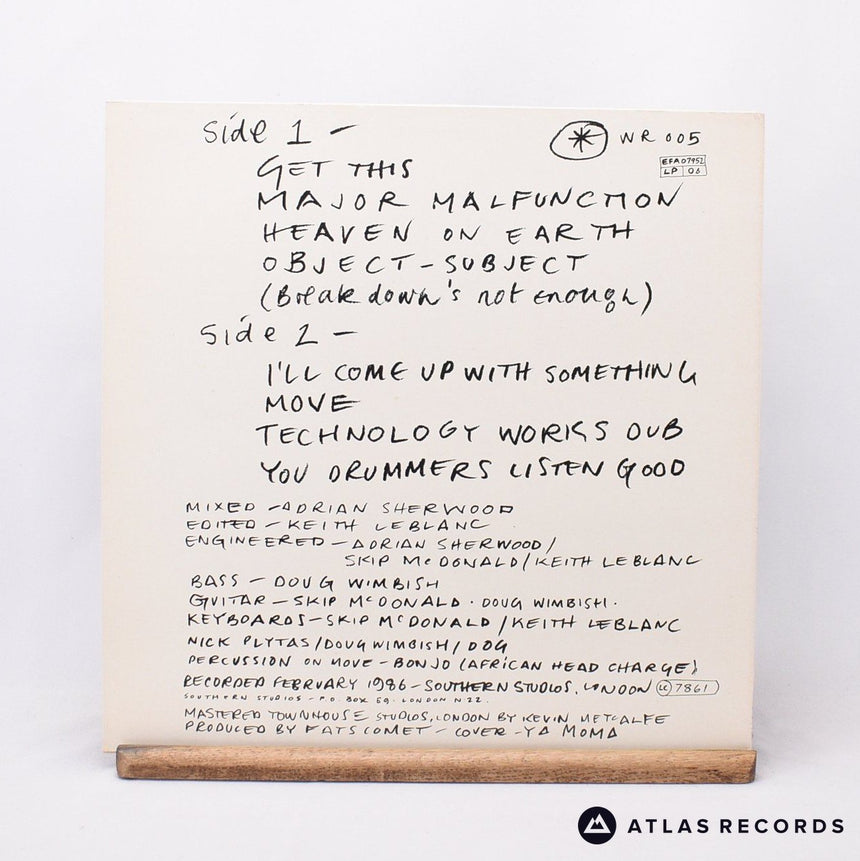 Side 1 -
WR 005
EFA 07952
LP 08
GET THIS
MAJOR MALFUNCTION
HEAVEN ON EARTH
OBJECT-SUBJECT
(Break down's not enough)
Side 2 -
I'LL COME UP WITH SOMETHING
MOVE
TECHNOLOGY WORKS DUB
YOU DRUMMERS LISTEN GOOD
MIXED - ADRIAN SHERWOOD
EDITED - KEITH LEBLANC
ENGINEERED - ADRIAN SHERWOOD/
SKIP McDONALD/KEITH LEBLANC
BASS - DOUG WIMBISH
GUITAR - SKIP McDONALD · DOUG WIMBISH ·
KEYBOARDS - SKIP McDONALD / KEITH LEBLANC
NICK PLYTAS/DOUG WIMBISH/DOG
PERCUSSION ON MOVE - BONJO (AFRICAN HEAD CHARGE)
RECORDED FEBRUARY 1986 - SOUTHERN STUDIOS, LONDON LC 7861
SOUTHERN STUDIOS - P.O. BOX 59. LONDON N22.
MASTERED TOWNHOUSE STUDIOS, LONDON BY KEVIN METCALFE
PRODUCED BY FATS COMET - COVER - YA MOMA
ATLAS RECORDS